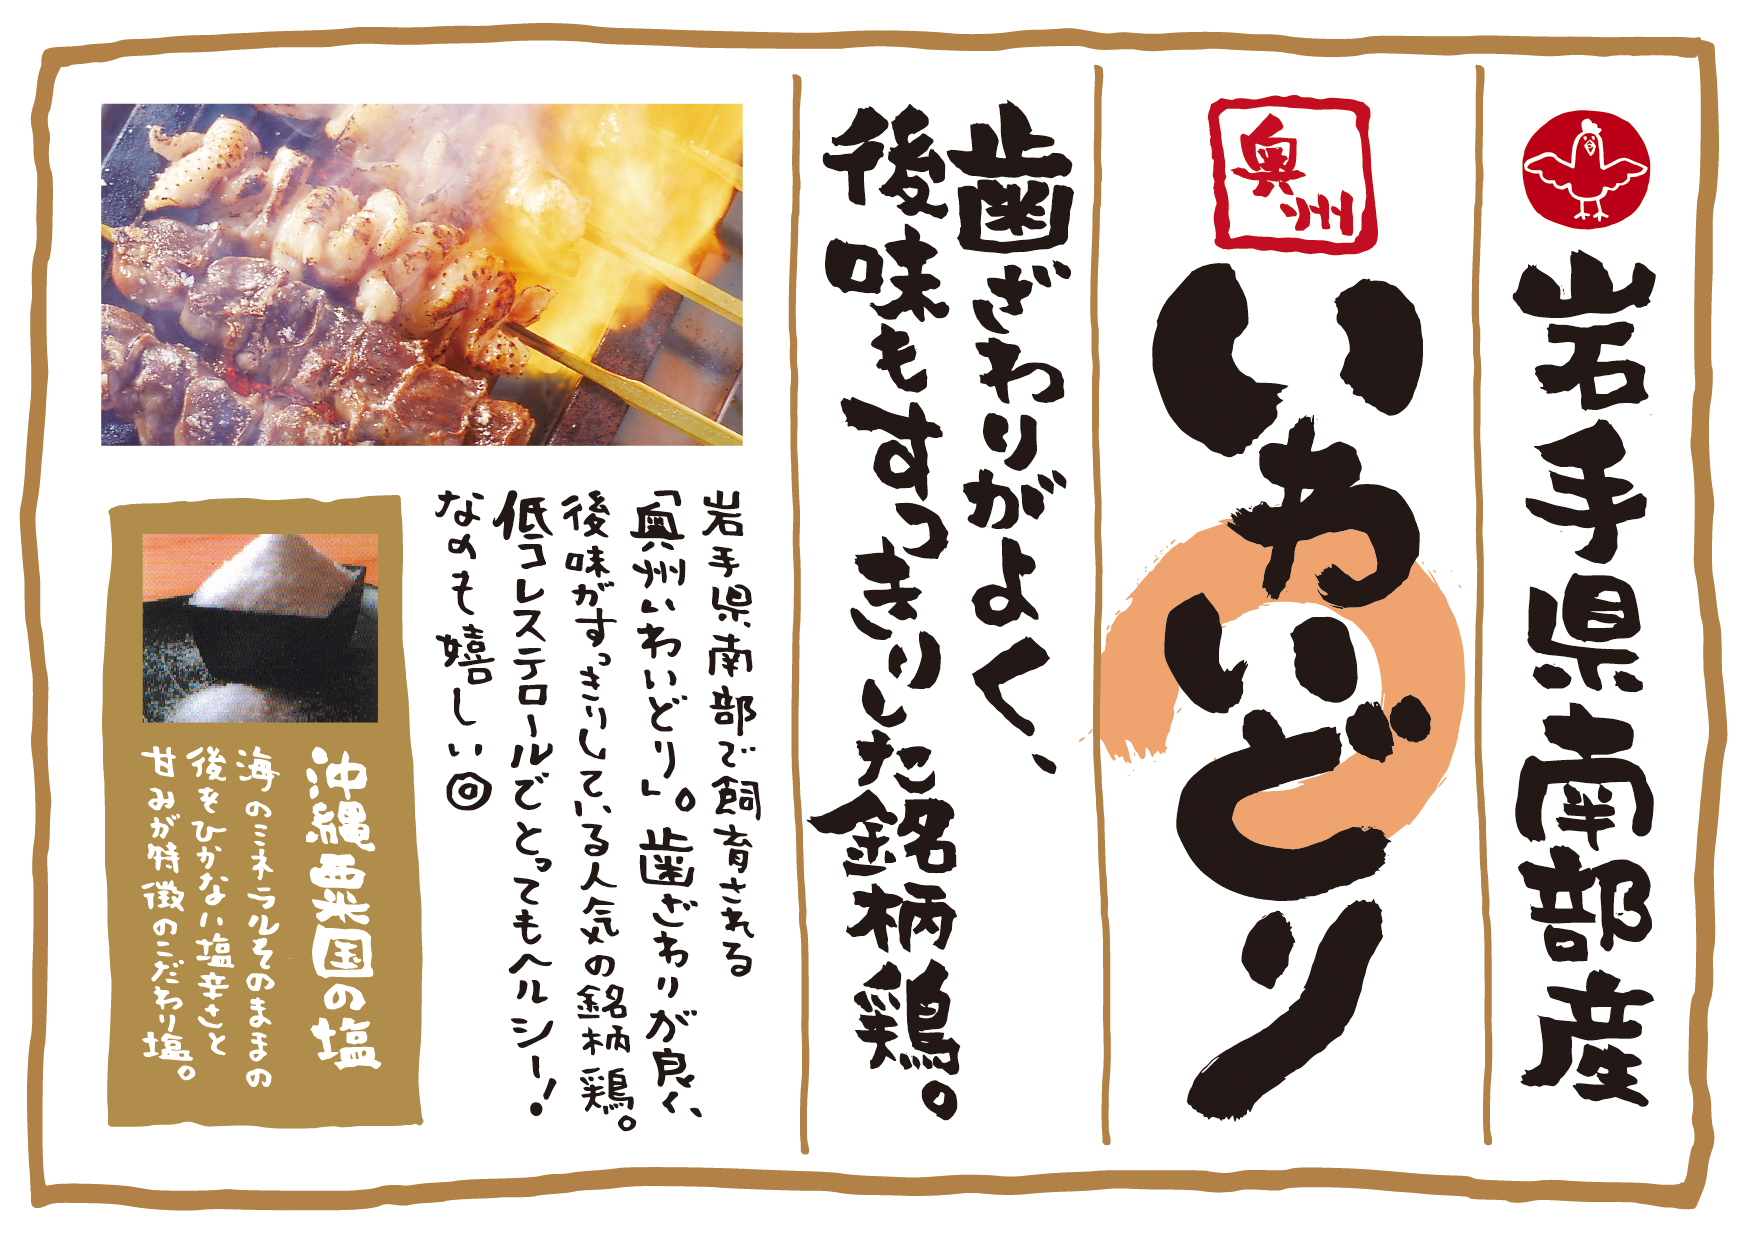 岩手県南部産
奥州
いわいどり
歯ざわりがよく、
後味もすっきりした銘柄鶏。
岩手県南部で飼育される
「奥州いわいどり」。歯ざわりが良く、
後味がすっきりしている人気の銘柄鶏。
低コレステロールでとってもヘルシー!
なのも嬉しい◎
沖縄粟国の塩
海のミネラルそのままの
後をひかない塩辛さと
甘みが特徴のこだわり塩。